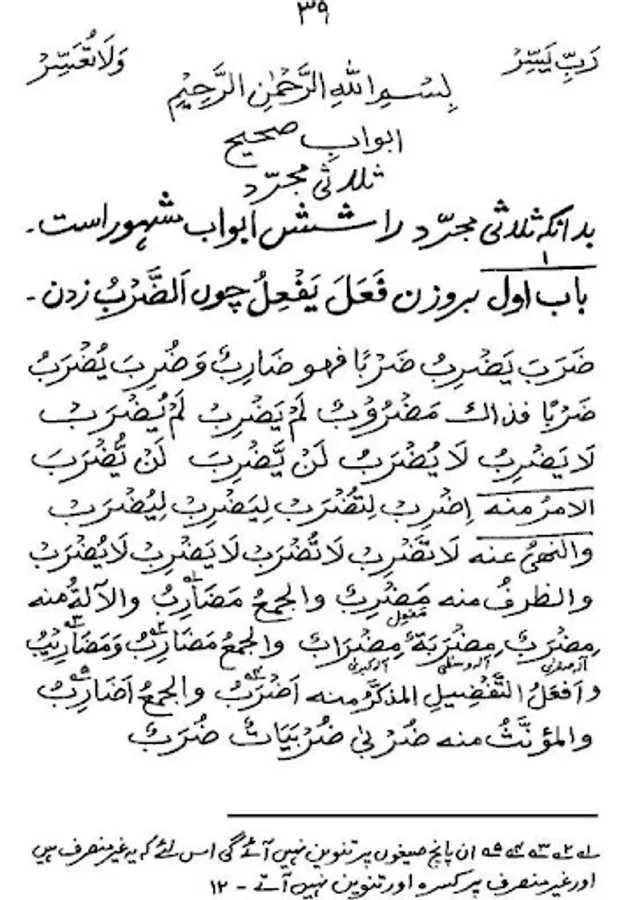 ۳۹
رَبِّ یَسِّرْ وَلَا تُعَسِّرْ
بِسْمِ اللّٰهِ الرَّحْمٰنِ الرَّحِیْمِ
ابوابِ صحیح
ثلاثی مجرّد
بدانکہ ثلاثی مجرّد را شش ابواب مشہور است۔
باب اول بروزن فَعَلَ یَفْعِلُ چوں اَلضَّرْبُ زدن۔
ضَرَبَ یَضْرِبُ ضَرْبًا فھو ضَارِبٌ وَضُرِبَ یُضْرَبُ
ضَرْبًا فذاك مَضْرُوْبٌ لَمْ یَضْرِبْ لَمْ یُضْرَبْ
لَا یَضْرِبُ لَا یُضْرَبُ لَنْ یَّضْرِبَ لَنْ یُّضْرَبَ
الامرُ منه اِضْرِبْ لِتُضْرَبْ لِیَضْرِبْ لِیُضْرَبْ
والنھیُ عنه لَا تَضْرِبْ لَا تُضْرَبْ لَا یَضْرِبْ لَا یُضْرَبْ
والظرفُ منه مَضْرِبٌ والجمعُ مَضَارِبُ والآلةُ منه
مِضْرَبٌ مِضْرَبَةٌ مِضْرَابٌ والجمعُ مَضَارِبُ وَمَضَارِیْبُ
آلہ صغریٰ آلہ وسطیٰ آلہ کبریٰ
وافعلُ التَّفْضِیلِ المذکَّرُ منه اَضْرَبُ والجمعُ اَضَارِبُ
والمؤنَّثُ منه ضُرْبٰی ضُرْبَیَاتٌ ضُرَبٌ
۱ ۲ ۳ ۴ ۵ ان پانچ صیغوں پر تنوین نہیں آئے گی اس لئے کہ یہ غیر منصرف ہیں
اور غیر منصرف پر کسرہ اور تنوین نہیں آتے - ۱۲